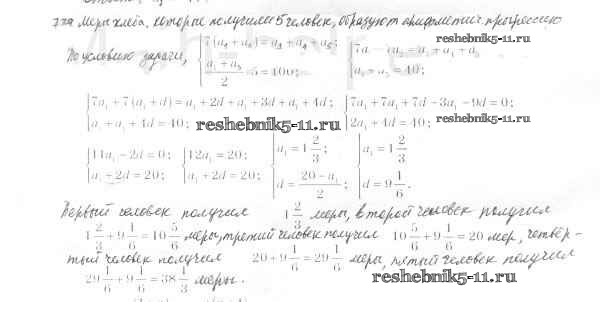 меры хлеба, которые получили 5 человек, образуют арифметич. прогрессию
По условию задачи, { 7(a₁ + a₂) = a₃ + a₄ + a₅; (a₁ + a₅)/2 · 5 = 100; { 7a₁ a₂ = a₃ + a₄ + a₅; a₁ + a₅ = 40;
{ 7a₁ + 7(a₁ + d) = a₁ + 2d + a₁ + 3d + a₁ + 4d; a₁ + a₁ + 4d = 40; { 7a₁ + 7a₁ + 7d − 3a₁ − 9d = 0; 2a₁ + 4d = 40;
reshebnik5-11.ru
reshebnik5-11.ru
{ 11a₁ − 2d = 0; a₁ + 2d = 20; { 12a₁ = 20; a₁ + 2d = 20; { a₁ = 1 2/3; d = (20 − a₁)/2; { a₁ = 1 2/3 d = 9 1/6.
Первый человек получил 1 2/3 меры, второй человек получил
1 2/3 + 9 1/6 = 10 5/6 меры, третий человек получил 10 5/6 + 9 1/6 = 20 мер, четвёр-
тый человек получил 20 + 9 1/6 = 29 1/6 меры, пятый человек получил
29 1/6 + 9 1/6 = 38 1/3 меры.
reshebnik5-11.ru